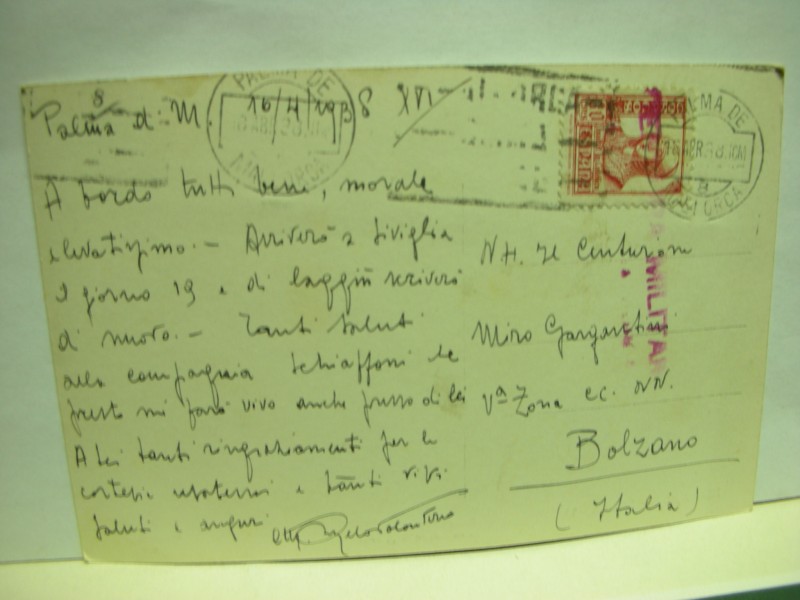 Palma di M. 16/4/1938 XVI
PALMA DE
MALLORCA
A bordo tutti bene, morale
elevatissimo. - Arriverò a Siviglia
il giorno 19 e di laggiù scriverò
di nuovo. - Tanti saluti
alla compagnia Schiaffoni che
presto mi farò vivo anche presso di lei
A Lei tanti ringraziamenti per le
cortesie usatemi e tanti vivi
saluti e auguri
PALMA DE
16 ABR 38
MALLORCA
MILITAR
N.H. Il Centurione
Miro Gargantini
Va Zona CC. NN.
Bolzano
(Italia)